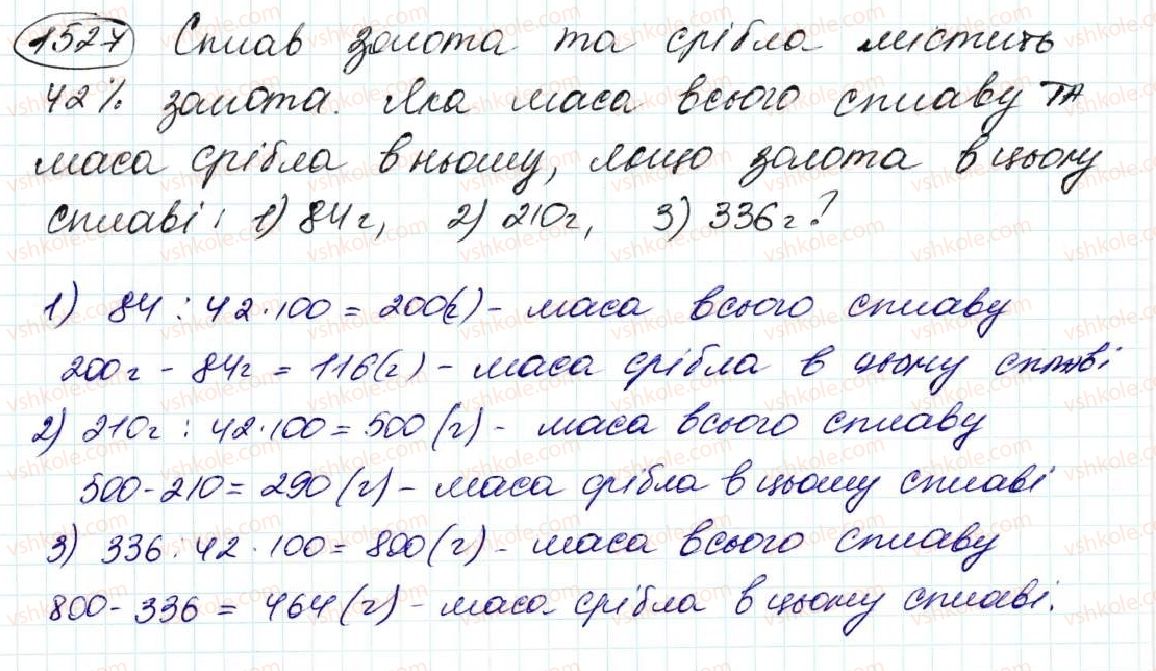 1527 Сплав золота та срібла містить
42% золота. Яка маса всього сплаву та
маса срібла в ньому, якщо золота в цьому
сплаві: 1) 84г, 2) 210г, 3) 336г?
1) 84 : 42 · 100 = 200(г) - маса всього сплаву
200г - 84г = 116(г) - маса срібла в цьому сплаві
2) 210г : 42 · 100 = 500(г) - маса всього сплаву
500 - 210 = 290(г) - маса срібла в цьому сплаві
3) 336 : 42 · 100 = 800(г) - маса всього сплаву
800 - 336 = 464(г) - маса срібла в цьому сплаві.
vshkole.com